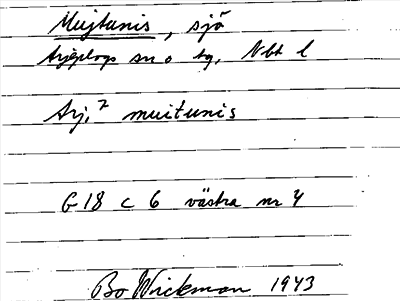 Mujtunis, sjö
Arjeplogs sn o tg, Nbt l
Arj.² muitunis
G 18 c 6 västra nr 4
Bo Wickman 1943